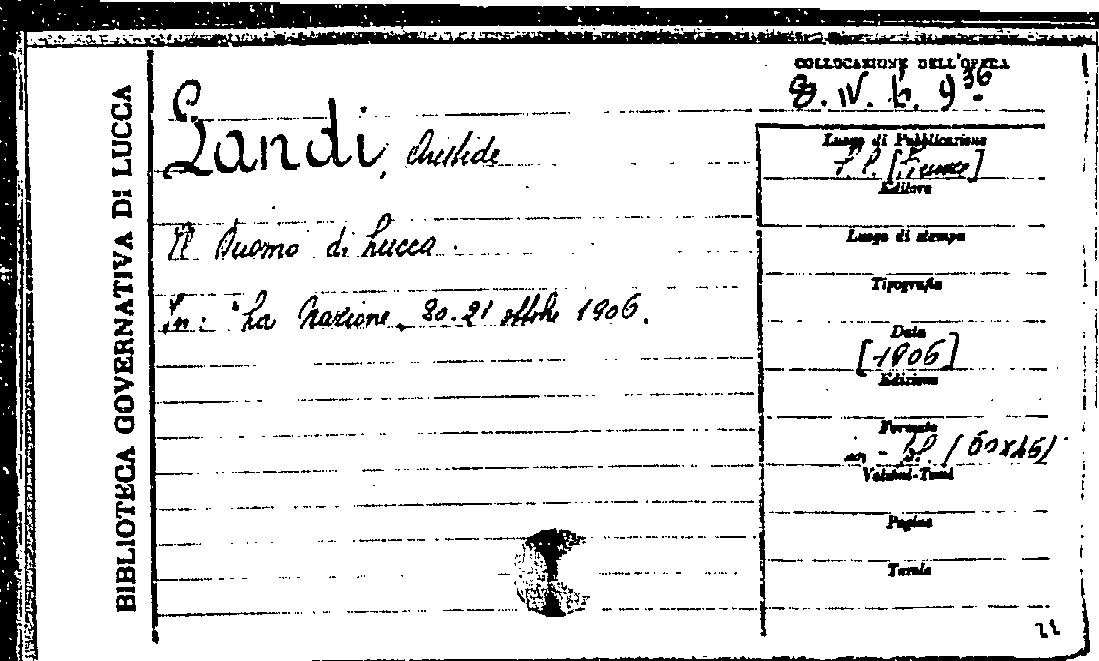 BIBLIOTECA GOVERNATIVA DI LUCCA
COLLOCAZIONE DELL'OPERA
8. IV. b. 9 36
Landi, Aristide
Il Duomo di Lucca.
In: "La Nazione" 20-21 ottobre 1906.
Luogo di Pubblicazione
[Firenze]
Editore
Luogo di stampa
Tipografia
Data
[1906]
Edizione
Formato
in - (60x45)
Volumi-Tomi
Pagine
Tavole
21